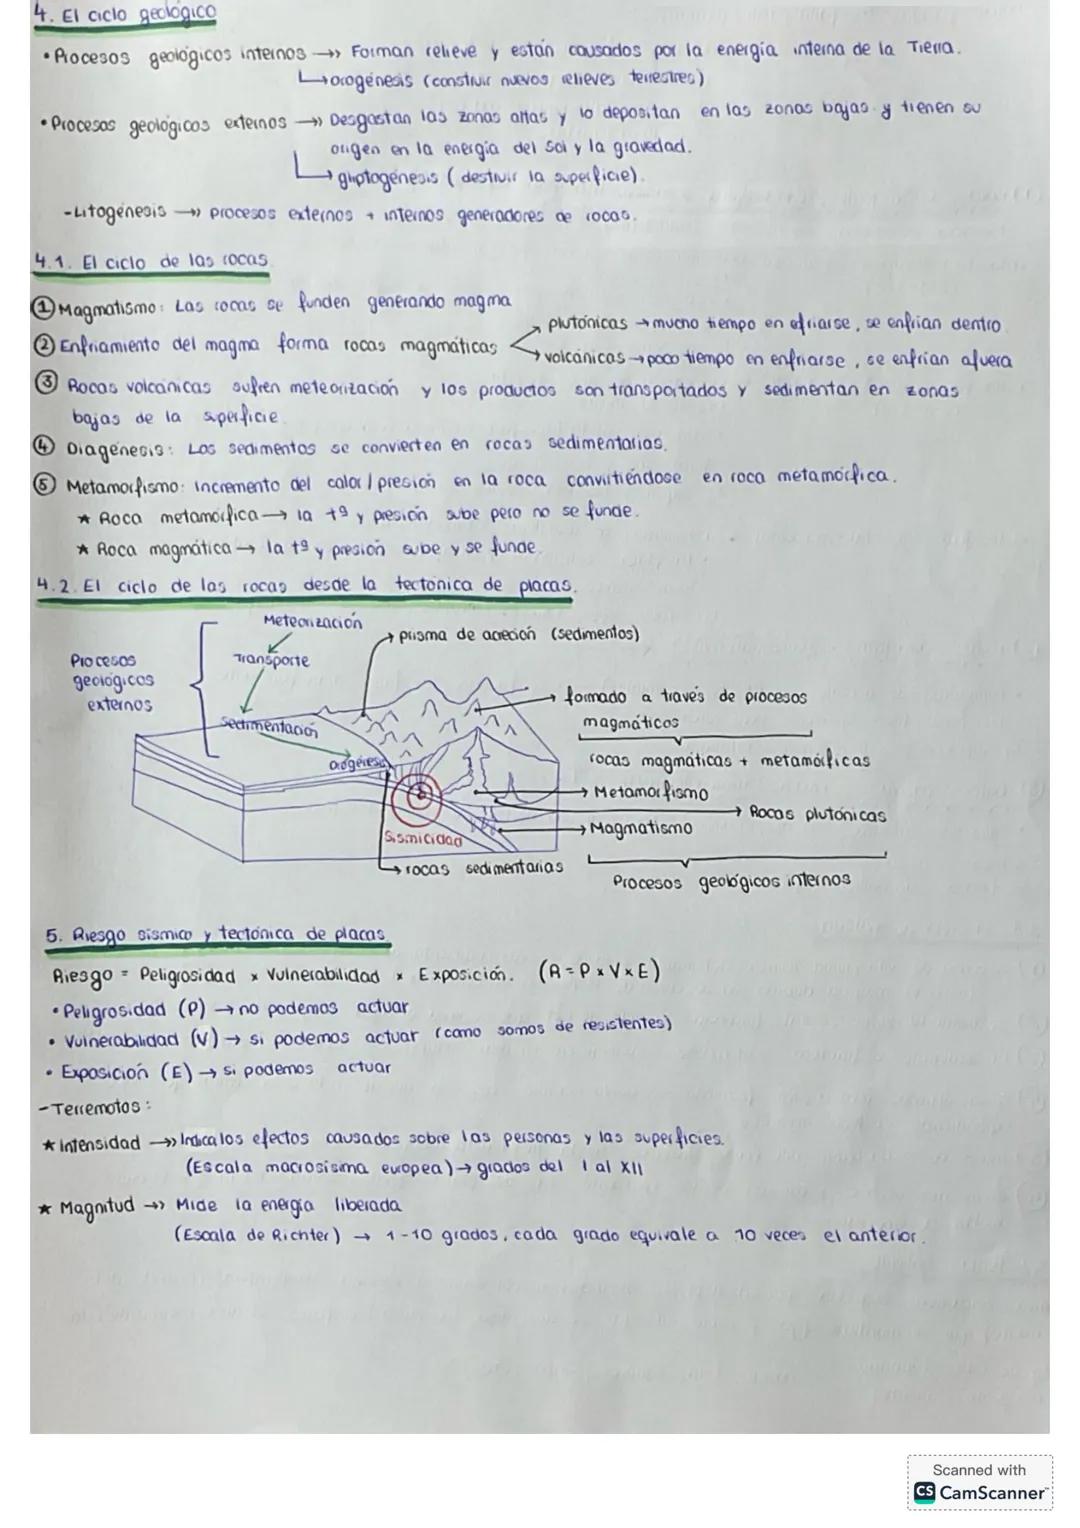 4. El ciclo geológico
• Procesos geológicos internos →» Forman relieve y están causados por la energía interna de la Tierra.
↳ orogénesis (construir nuevos relieves terrestres)
• Procesos geológicos externos →» Desgastan las zonas altas y lo depositan en las zonas bajas y tienen su
origen en la energía del Sol y la gravedad.
↳ gliptogénesis (destruir la superficie).
- Litogénesis →» procesos externos + internos generadores de rocas.
4.1. El ciclo de las rocas
① Magmatismo: Las rocas se funden generando magma
plutónicas → mucho tiempo en efriarse, se enfrían dentro
② Enfriamiento del magma forma rocas magmáticas
volcánicas → poco tiempo en enfriarse, se enfrían afuera
③ Rocas volcánicas sufren meteorización y los productos son transportados y sedimentan en zonas
bajas de la superficie.
④ Diagénesis: Los sedimentos se convierten en rocas sedimentarias.
⑤ Metamorfismo: Incremento del calor/presión en la roca convirtiéndose en roca metamórfica.
★ Roca metamórfica → la tª y presión sube pero no se funde.
★ Roca magmática → la tª y presión sube y se funde.
4.2. El ciclo de las rocas desde la tectónica de placas.
Meteorización
→ prisma de acreción (sedimentos)
Procesos
geológicos
externos
Transporte
→ formado a través de procesos
magmáticos
Sedimentación
Orogénesis
rocas magmáticas + metamórficas
→ Metamorfismo
→ Rocas plutónicas
→ Magmatismo
Sismicidad
→ rocas sedimentarias
Procesos geológicos internos
5. Riesgo sísmico y tectónica de placas
Riesgo = Peligrosidad x Vulnerabilidad x Exposición. (R = P x V x E)
• Peligrosidad (P) → no podemos actuar
• Vulnerabilidad (V) → si podemos actuar (como somos de resistentes)
• Exposición (E) → si podemos actuar
- Terremotos:
★ Intensidad →» Indica los efectos causados sobre las personas y las superficies.
(Escala macrosísima europea) → grados del I al XII
★ Magnitud →» Mide la energía liberada
(Escala de Richter) → 1-10 grados, cada grado equivale a 10 veces el anterior.
Scanned with
CS CamScanner